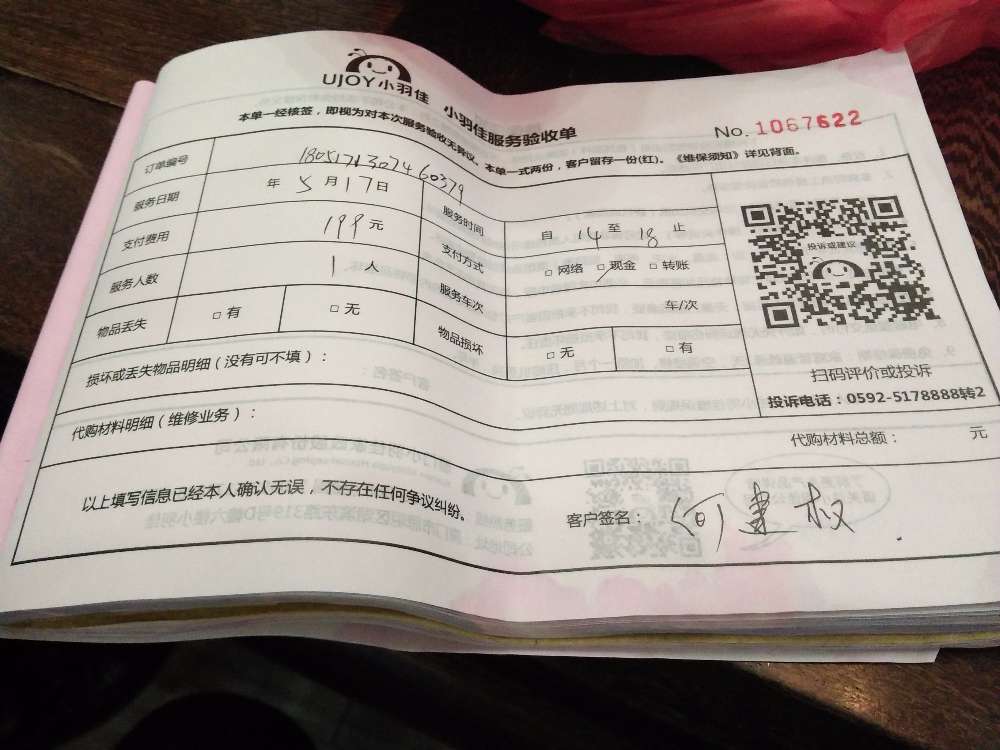 UJOY小羽佳 小羽佳服务验收单
No. 1067622
本单一经核签，即视为对本次服务验收无异议。本单一式两份，客户留存一份(红)。《维保须知》详见背面。
订单编号 180517130746 0379
服务日期 年 5 月 17 日 服务时间 自 14 至 18 止
支付费用 199 元 支付方式 □ 网络 □ 现金 □ 转账
服务人数 1 人 服务车次 车/次
物品丢失 □ 有 □ 无 物品损坏 □ 无 □ 有
投诉或建议
扫码评价或投诉
投诉电话：0592-5178888转2
损坏或丢失物品明细（没有可不填）：
代购材料明细（维修业务）：
代购材料总额： 元
以上填写信息已经本人确认无误，不存在任何争议纠纷。
客户签名： 何建权